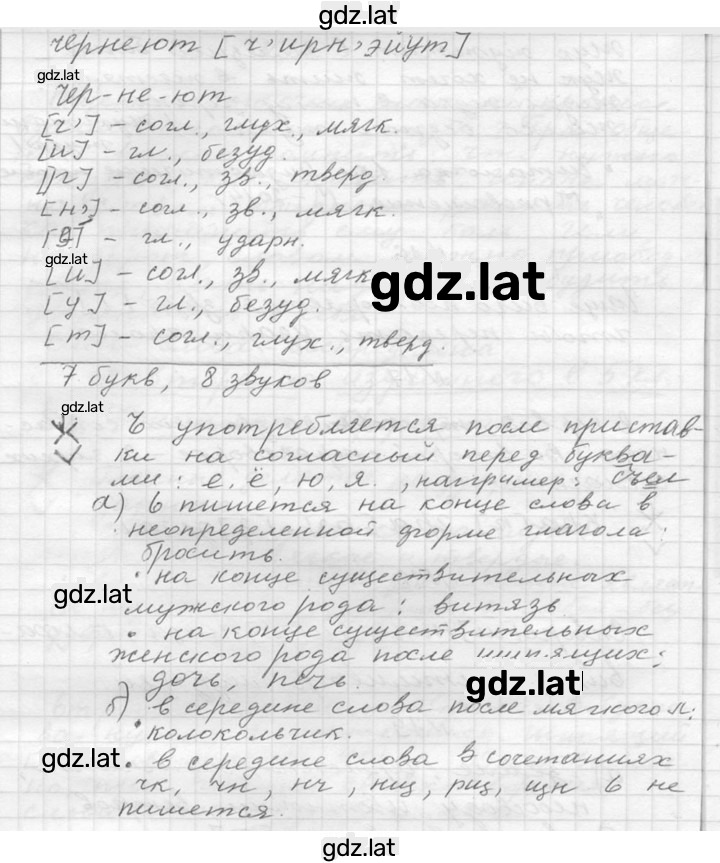 gdz.lat
чернеют [ч'ирн'эйут]
gdz.lat
Чер-не-ют
[ч'] – согл., глух., мягк.
[и] – гл., безуд.
[р] – согл., зв., тверд.
[н'] – согл., зв., мягк.
[э] – гл., ударн.
gdz.lat
[й] – согл., зв., мягк.
gdz.lat
[у] – гл., безуд.
[т] – согл., глух., тверд.
7 букв, 8 звуков
gdz.lat
Ъ употребляется после пристав-
ки на согласный перед буква-
ми: е, ё, ю, я., например: съел
а) ь пишется на конце слова в
неопределенной форме глагола:
бросить.
• на конце существительных
gdz.lat
мужского рода: витязь
• на конце существительных
женского рода после шипящих:
дочь, печь.
gdz.lat
б) в середине слова после мягкого л:
• колокольчик.
gdz.lat
• в середине слова в сочетаниях
чк, чн, нч, нщ, рщ, щн ь не
пишется.
gdz.lat